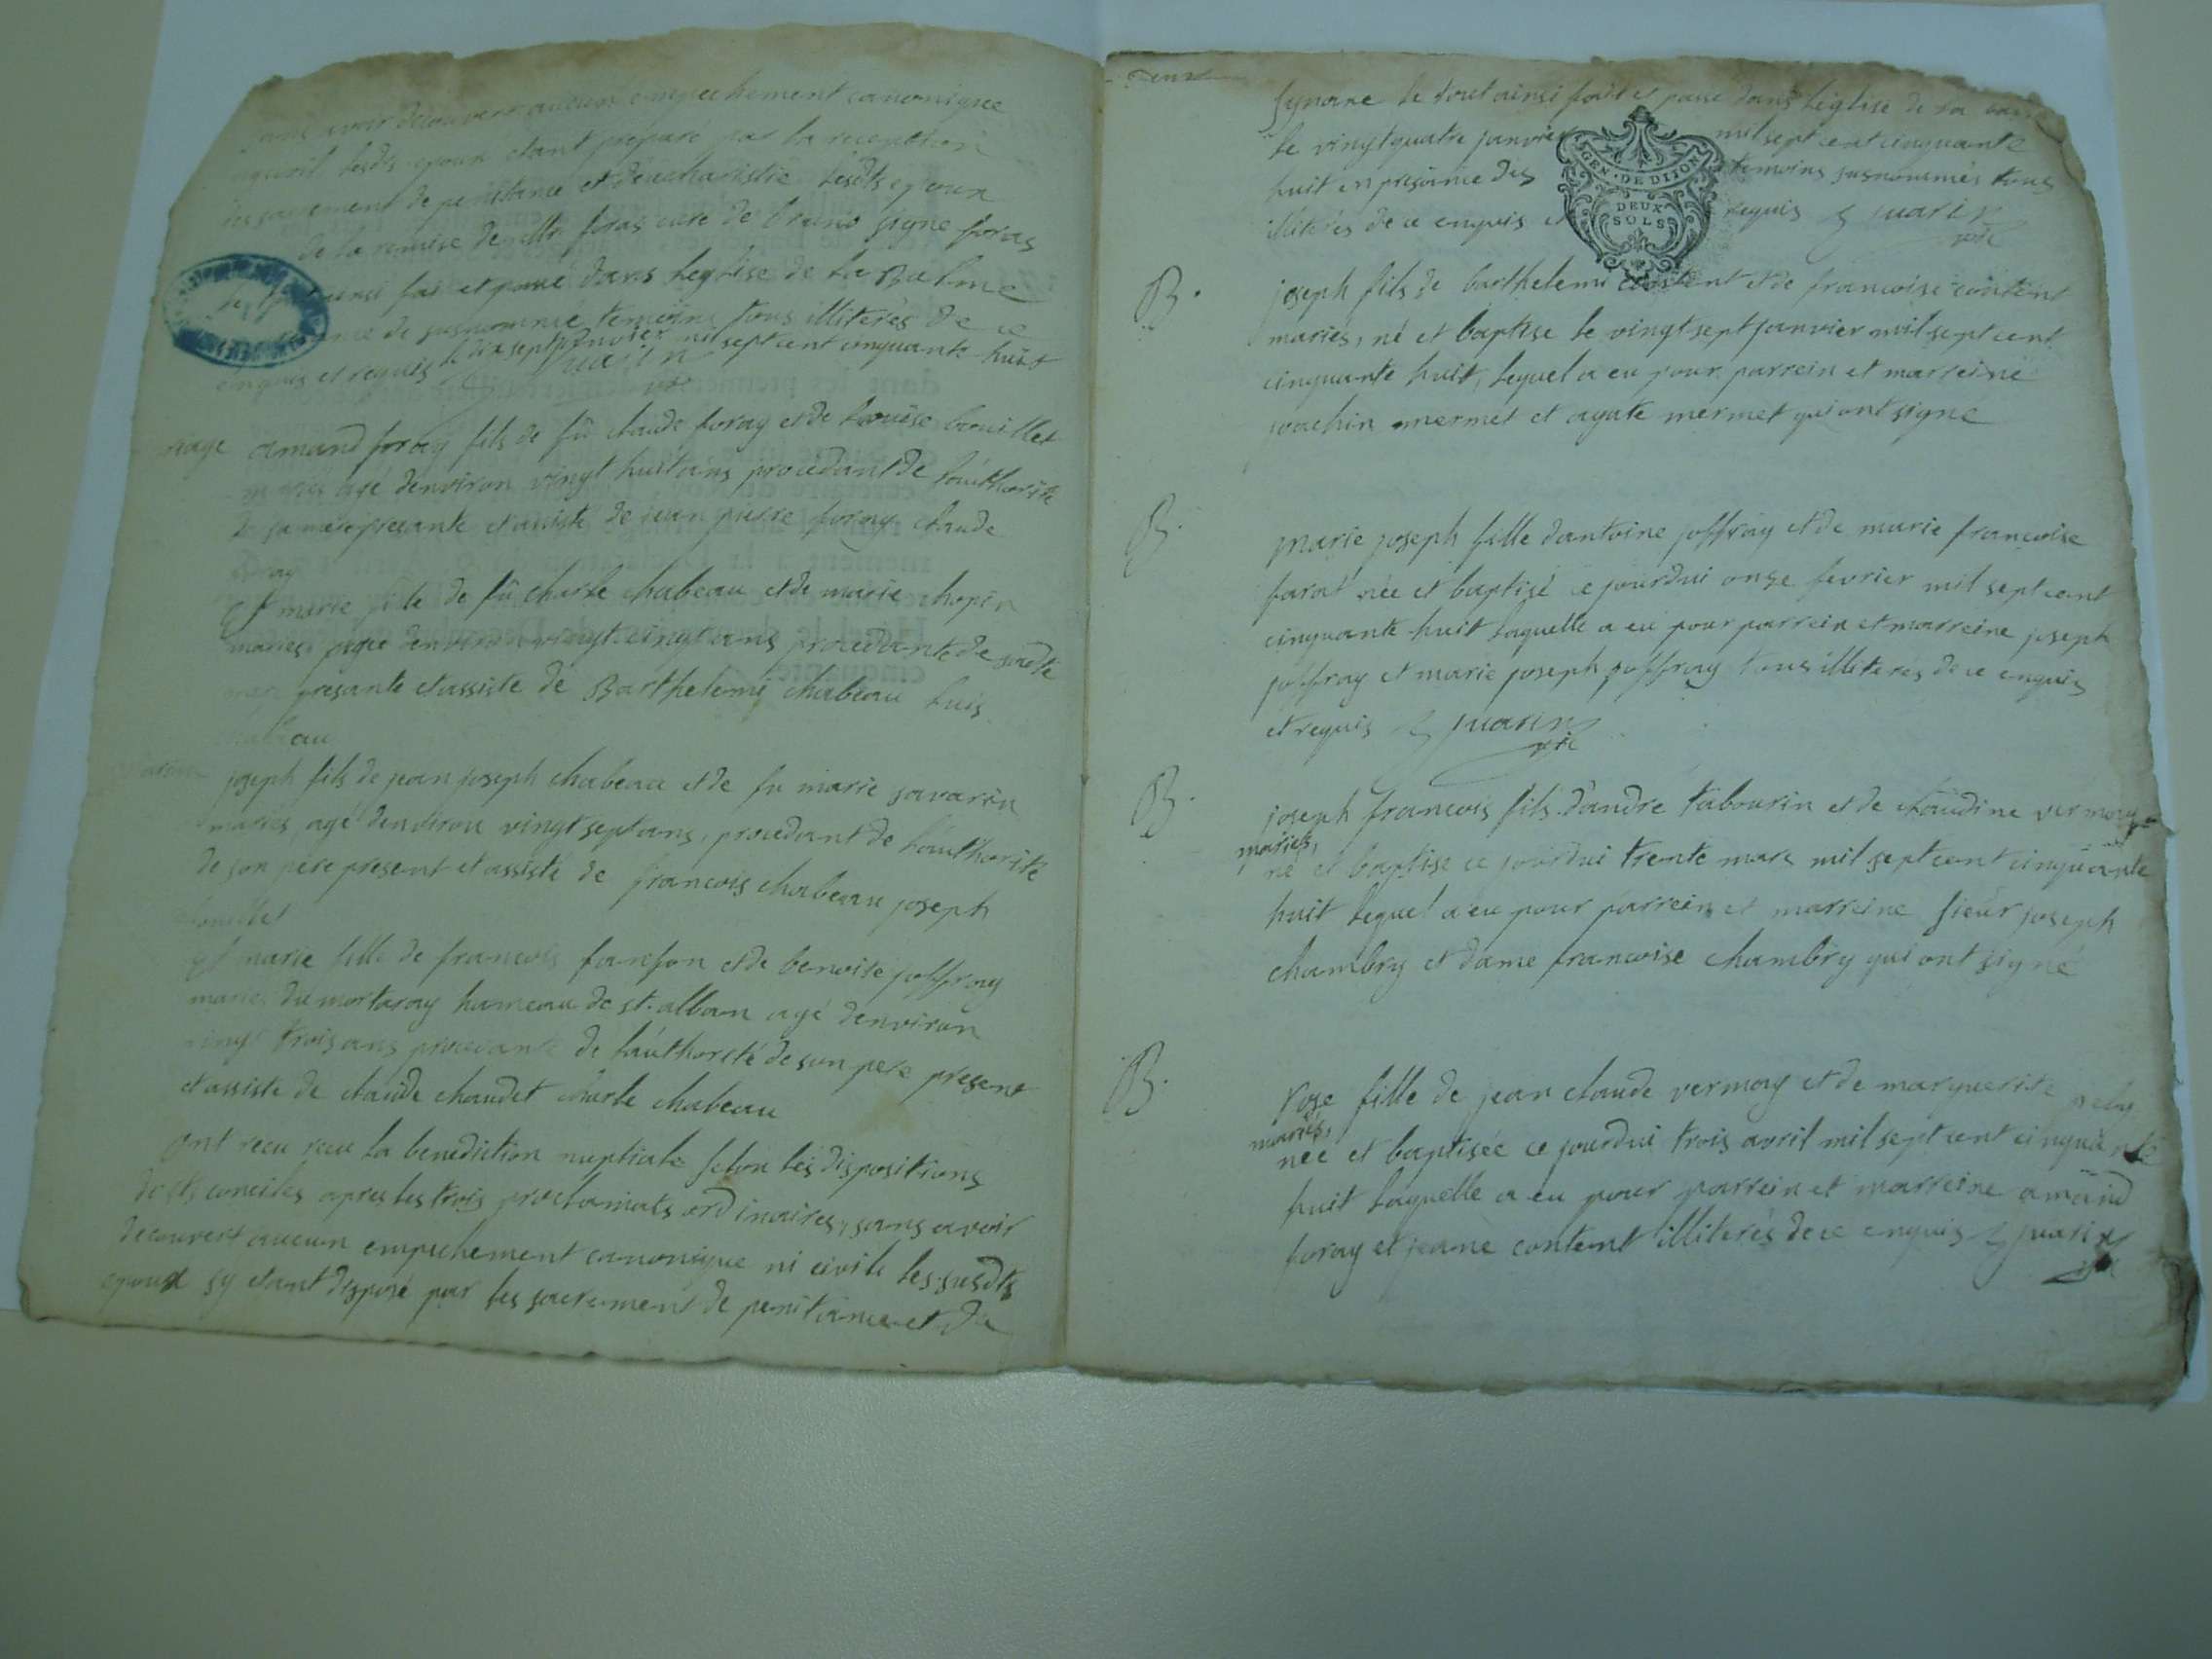 sans avoir decouvert aucun empechement canonique
ni civil lesdts epoux etant preparé par la reception
des sacrement de penitence et deucharistie lesdts epoux
de la remise de mr foras curé de signe foras
ainsi fai et passe dans leglise de la Balme
de susnommie temoins tous illiterés de ce
enquis et requis le dix sept janvier mil sept cent cinquante huit
juarin
ptre
riage
amand foray fils de fû claude foray et de louise brouillet
mariés agé denviron vingt huit ans procedant de láuthorité
de sa mere presante et assisté de jean pierre foray claude
foray
Et marie fille de fû charle chabeau et de marie chopin
mariés agee denviron vingt cinqt ans procedante de sadte
mere presante et assiste de Barthelemi chabeau luis
chabeau
joseph fils de jean joseph chabeau et de fu marie savarin
mariés, agé denviron vingt sept ans, procedant de láuthorité
de son père present et assisté de francois chabeau joseph
Et marie fille de francois fanfon et de benoite joffray
marie du mortaray hameau de st. alban agé denviron
vingt trois ans procedante de láuthorité de son pere present
et assiste de claude chaudet charle chabeau
ont recu recu la benediction nuptiale selon les dispositions
de sts conciles apres les trois proclamats ordinaires, sans avoir
decouvert aucun empechement canonique ni civile les susdts
epoux sy etant disposé par les sacrement de penitance et de
signare le tout ainsi fait et passé dans léglise de la
le vingt quatre janvier mil sept cent cinquante
huit en presance des temoins susnommés tous
illiterés de ce enquis et requis juarin
ptre
GEN · DE DIJON
DEUX
SOLS
B.
joseph fils de barthelemi content et de francoise content
mariés, né et baptise le vingt sept janvier mil sept cent
cinquante huit, lequel a eu pour parrein et marreine
joachin mermet et agate mermet qui ont signé
B.
marie joseph fille dantoine joffray et de marie francoise
farat née et baptisé ce jourdui onze fevrier mil sept cent
cinquante huit laquelle a eu pour parrein et marreine joseph
joffray et marie joseph joffray tous illiterés de ce enquis
et requis juarin
ptre
B.
joseph francois fils dándre tabourin et de claudine vermoy
mariés,
né et baptise ce jourdui trente mars mil sept cent cinquante
huit lequel a eu pour parrein et marreine sieur joseph
chambry et dame francoise chambry qui ont signé
B.
rose fille de jean claude vermoy et de marguerite
mariés,
née et baptisée ce jourdui trois avril mil sept cent cinquante
huit laquelle a eu pour parrein et marreine amand
foray et jeane content illiterés de ce enquis juarin
ptre